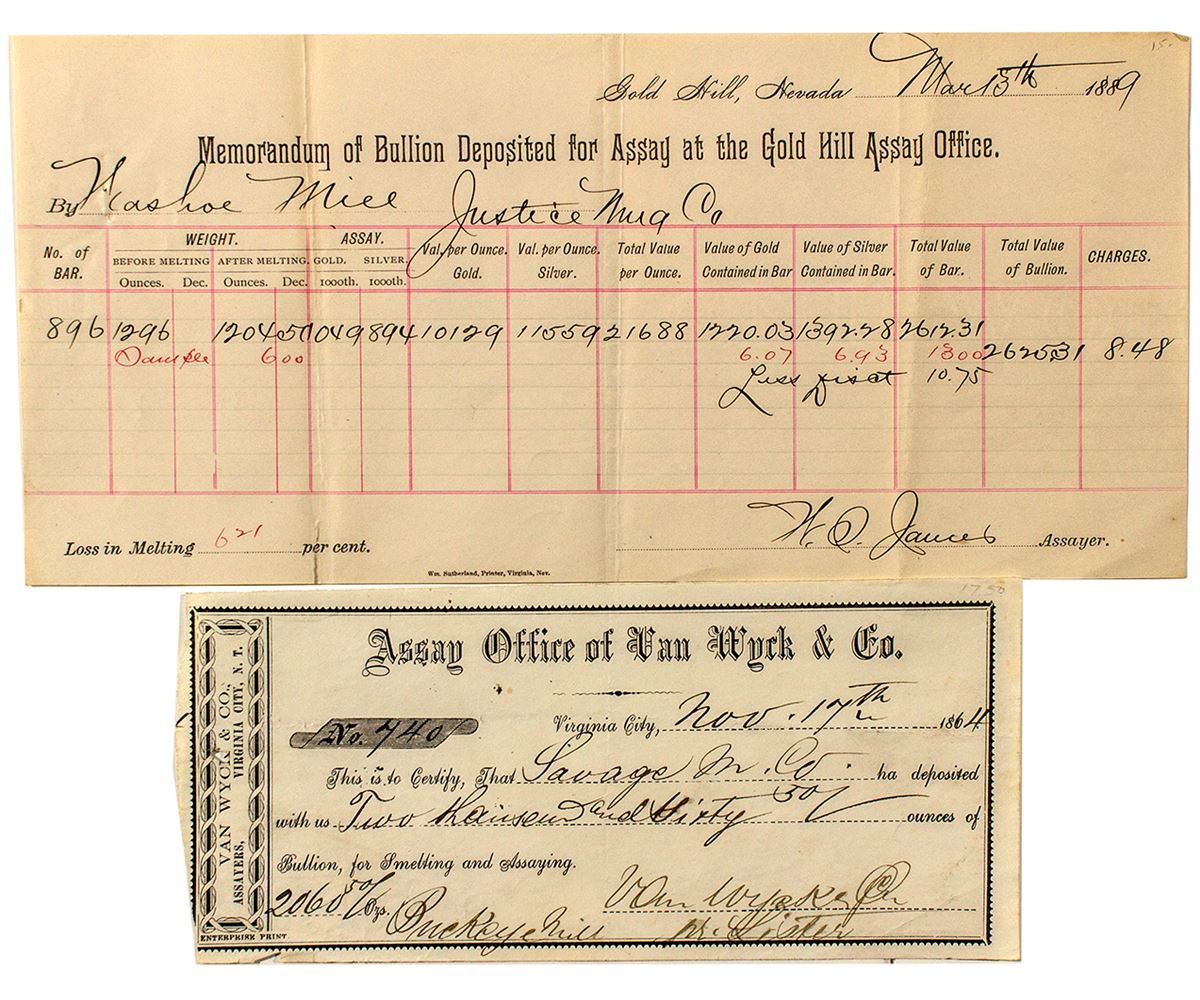 15.-
Gold Hill, Nevada Mar 13th 1889
Memorandum of Bullion Deposited for Assay at the Gold Hill Assay Office.
By Washoe Mill Justice Mng Co
No. of BAR. WEIGHT. ASSAY. Val. per Ounce. Gold. Val. per Ounce. Silver. Total Value per Ounce. Value of Gold Contained in Bar Value of Silver Contained in Bar. Total Value of Bar. Total Value of Bullion. CHARGES.
BEFORE MELTING AFTER MELTING. GOLD. SILVER.
Ounces. Dec. Ounces. Dec. 1000th. 1000th.
896 1296 1204 50 049 894 10129 11559 21688 1220.03 1392.28 2612.31
6 00 6.07 6.93 1300 262531 8.48
Less Disct 10.75
Loss in Melting 621 per cent. Assayer.
Wm. Sutherland, Printer, Virginia, Nev.
17 50
Assay Office of Van Wyck & Co.
VAN WYCK & CO.,
ASSAYERS, VIRGINIA CITY, N. T.
Virginia City, Nov. 17th 1864
No. 740
This is to Certify, That Savage M. Co. ha deposited
with us Two thousand and Sixty 50/ ounces of
Bullion, for Smelting and Assaying.
2060 50/ Ozs. Van Wyck & Co
Buckeye Mill pr.
ENTERPRISE PRINT